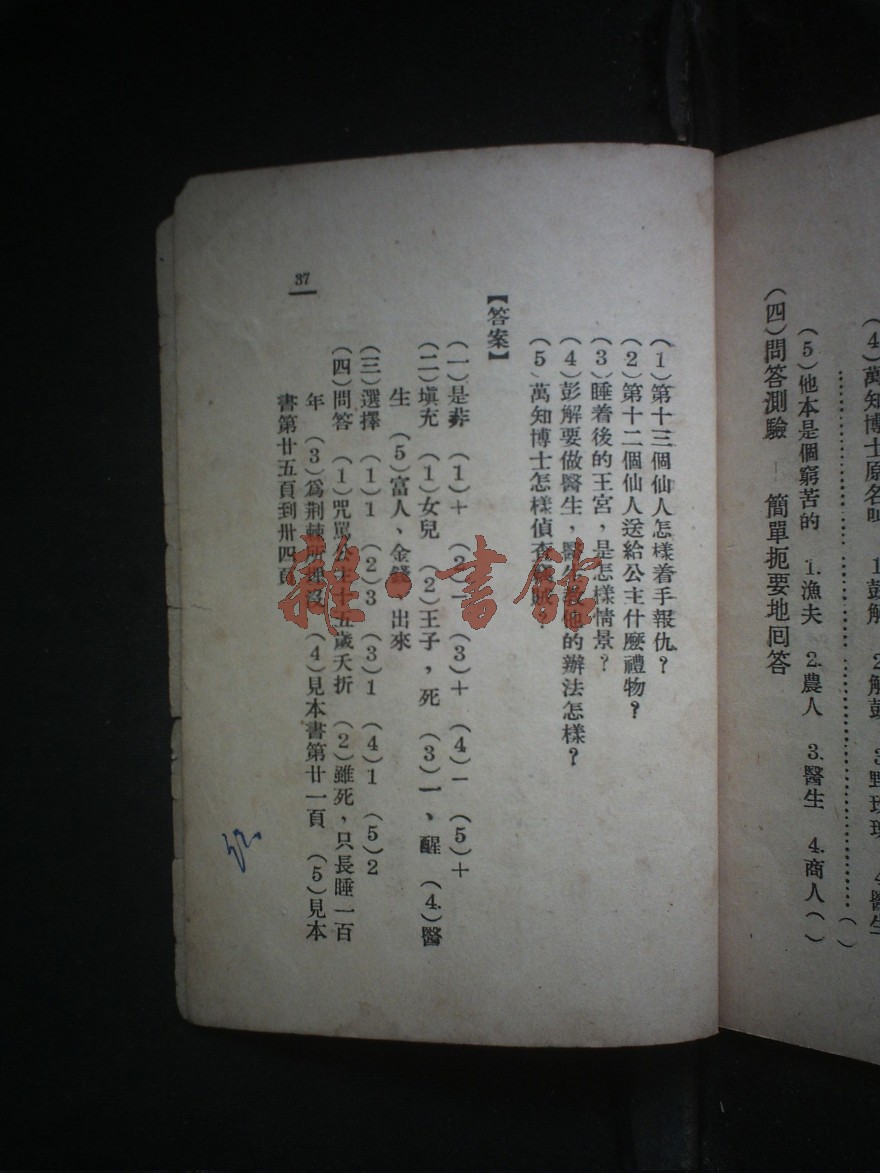 (4)萬知博士原名叫 1.彭解 2.解彭 3.野
………………………………( )
(5)他本是個窮苦的 1.漁夫 2.農人 3.醫生 4.商人( )
(四)問答測驗 簡單扼要地回答
(1)第十三個仙人怎樣着手報仇?
(2)第十二個仙人送給公主什麽禮物?
(3)睡着後的王宮,是怎樣情景?
(4)彭解要做醫生,醫生教他的辦法怎樣?
(5)萬知博士怎樣偵查
【答案】
(一)是非 (1)+ (2)一 (3)+ (4)一 (5)+
(二)填充 (1)女兒 (2)王子,死 (3)一、醒 (4)醫
生 (5)富人、金錢 出來
(三)選擇 (1)1 (2)3 (3)1 (4)1 (5)2
(四)問答 (1)咒罵公主十五歲夭折 (2)雖死,只長睡一百
年 (3)爲荆棘所 (4)見本書第廿一頁 (5)見本
書第廿五頁到卅四頁
37
雜·書館